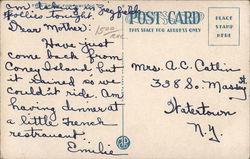 am taking in Zeigfeld
Follies tonight.
Dear Mother:
Have just
come back from
Coney Island but
it rained so we
couldn't ride. Am
having dinner at
a little French
restraunt
Emilie
POST CARD
THIS SPACE FOR ADDRESS ONLY
PLACE
STAMP
HERE
Mrs. A.C. Catlin
338 So. Massey St
Watertown
N.Y.